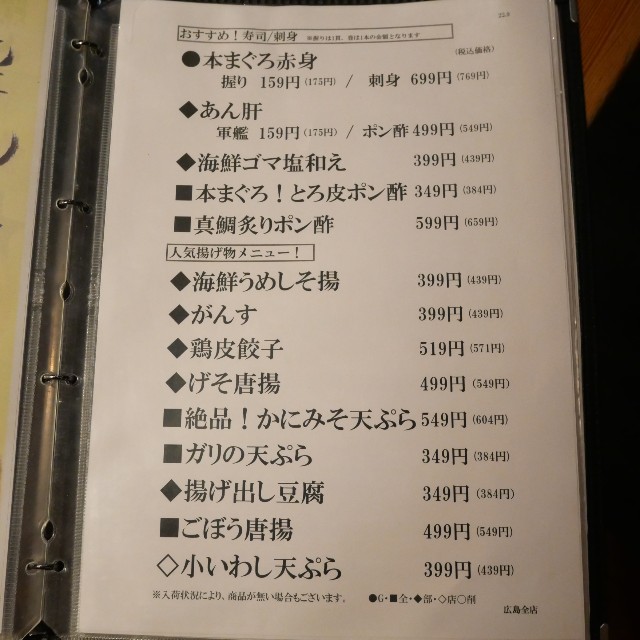 おすすめ！寿司/刺身 ※握りは1貫、巻は1本の金額となります
22.9
(税込価格)
●本まぐろ赤身
握り 159円(175円) / 刺身 699円(769円)
◆あん肝
軍艦 159円(175円) / ポン酢 499円(549円)
◆海鮮ゴマ塩和え 399円(439円)
■本まぐろ！とろ皮ポン酢 349円(384円)
■真鯛炙りポン酢 599円(659円)
人気揚げ物メニュー！
◆海鮮うめしそ揚 399円(439円)
◆がんす 399円(439円)
◆鶏皮餃子 519円(571円)
◆げそ唐揚 499円(549円)
■絶品！かにみそ天ぷら 549円(604円)
■ガリの天ぷら 349円(384円)
◆揚げ出し豆腐 349円(384円)
■ごぼう唐揚 499円(549円)
◇小いわし天ぷら 399円(439円)
※入荷状況により、商品が無い場合もございます。 ●G・■全・◆部・◇店○削
広島全店